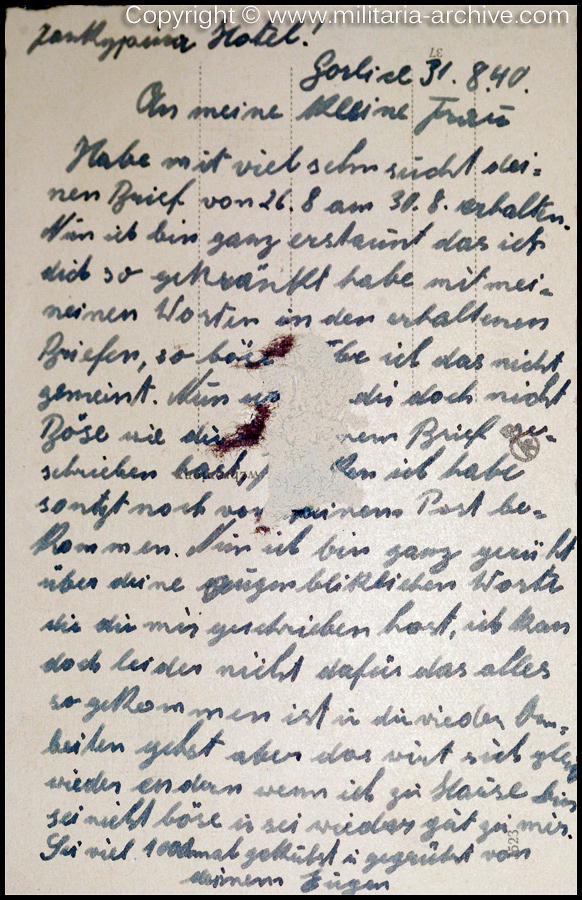 Copyright © www.militaria-archive.com
Hotel!
Gorlice 31. 8.40.
An meine kleine Frau
Habe mit viel sehnsucht dei=
nen Brief von 26.8 am 30.8. erhalten.
Nun ich bin ganz erstaunt das ich
dich so gekränkt habe mit mei=
neinen Worten in den erhaltenen
Briefen, so böse ich das nicht
gemeint. Nun doch nicht
Böse wie du Brief ge=
schrieben hast ich habe
sontzt noch von meinem Post be=
kommen. Nun ich bin ganz gerüht
über deine augenbliklichen Worte
die du mir geschrieben hast, ich kan
doch leider nicht dafür das alles
so gekommen ist u du wieder Arn=
beiten gehst aber das wirt sich
wieder endern wenn ich zu Hause bin
sei nicht böse u sei wieder gut zu mir.
Sei viel 1000mal geküßt u gegrüßt von
deinem Eugen
523